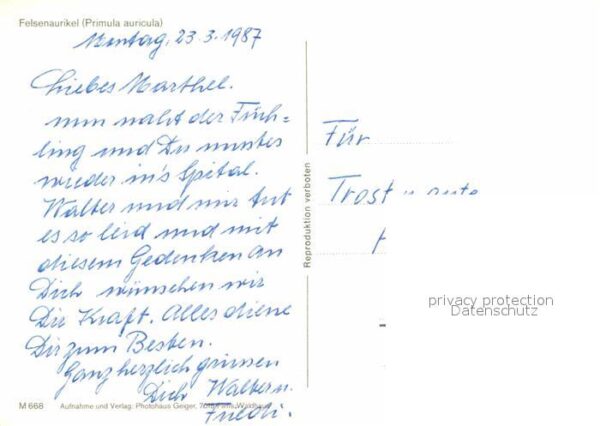 Felsenaurikel (Primula auricula)
Montag, 23.3.1987
Liebes Marthel.
nun naht der Früh=
ling und Du musstes
wieder in's Spital.
Walter und mir tut
es so leid und mit
diesem Gedenken an
Dich wünschen wir
Dir Kraft. Alles diene
Dir zum Besten.
Ganz herzlich grüssen
Dich Walter u.
M 668 Aufnahme und Verlag: Photohaus Geiger,
Reproduktion verboten
Für
Trost u gute
privacy protection
Datenschutz